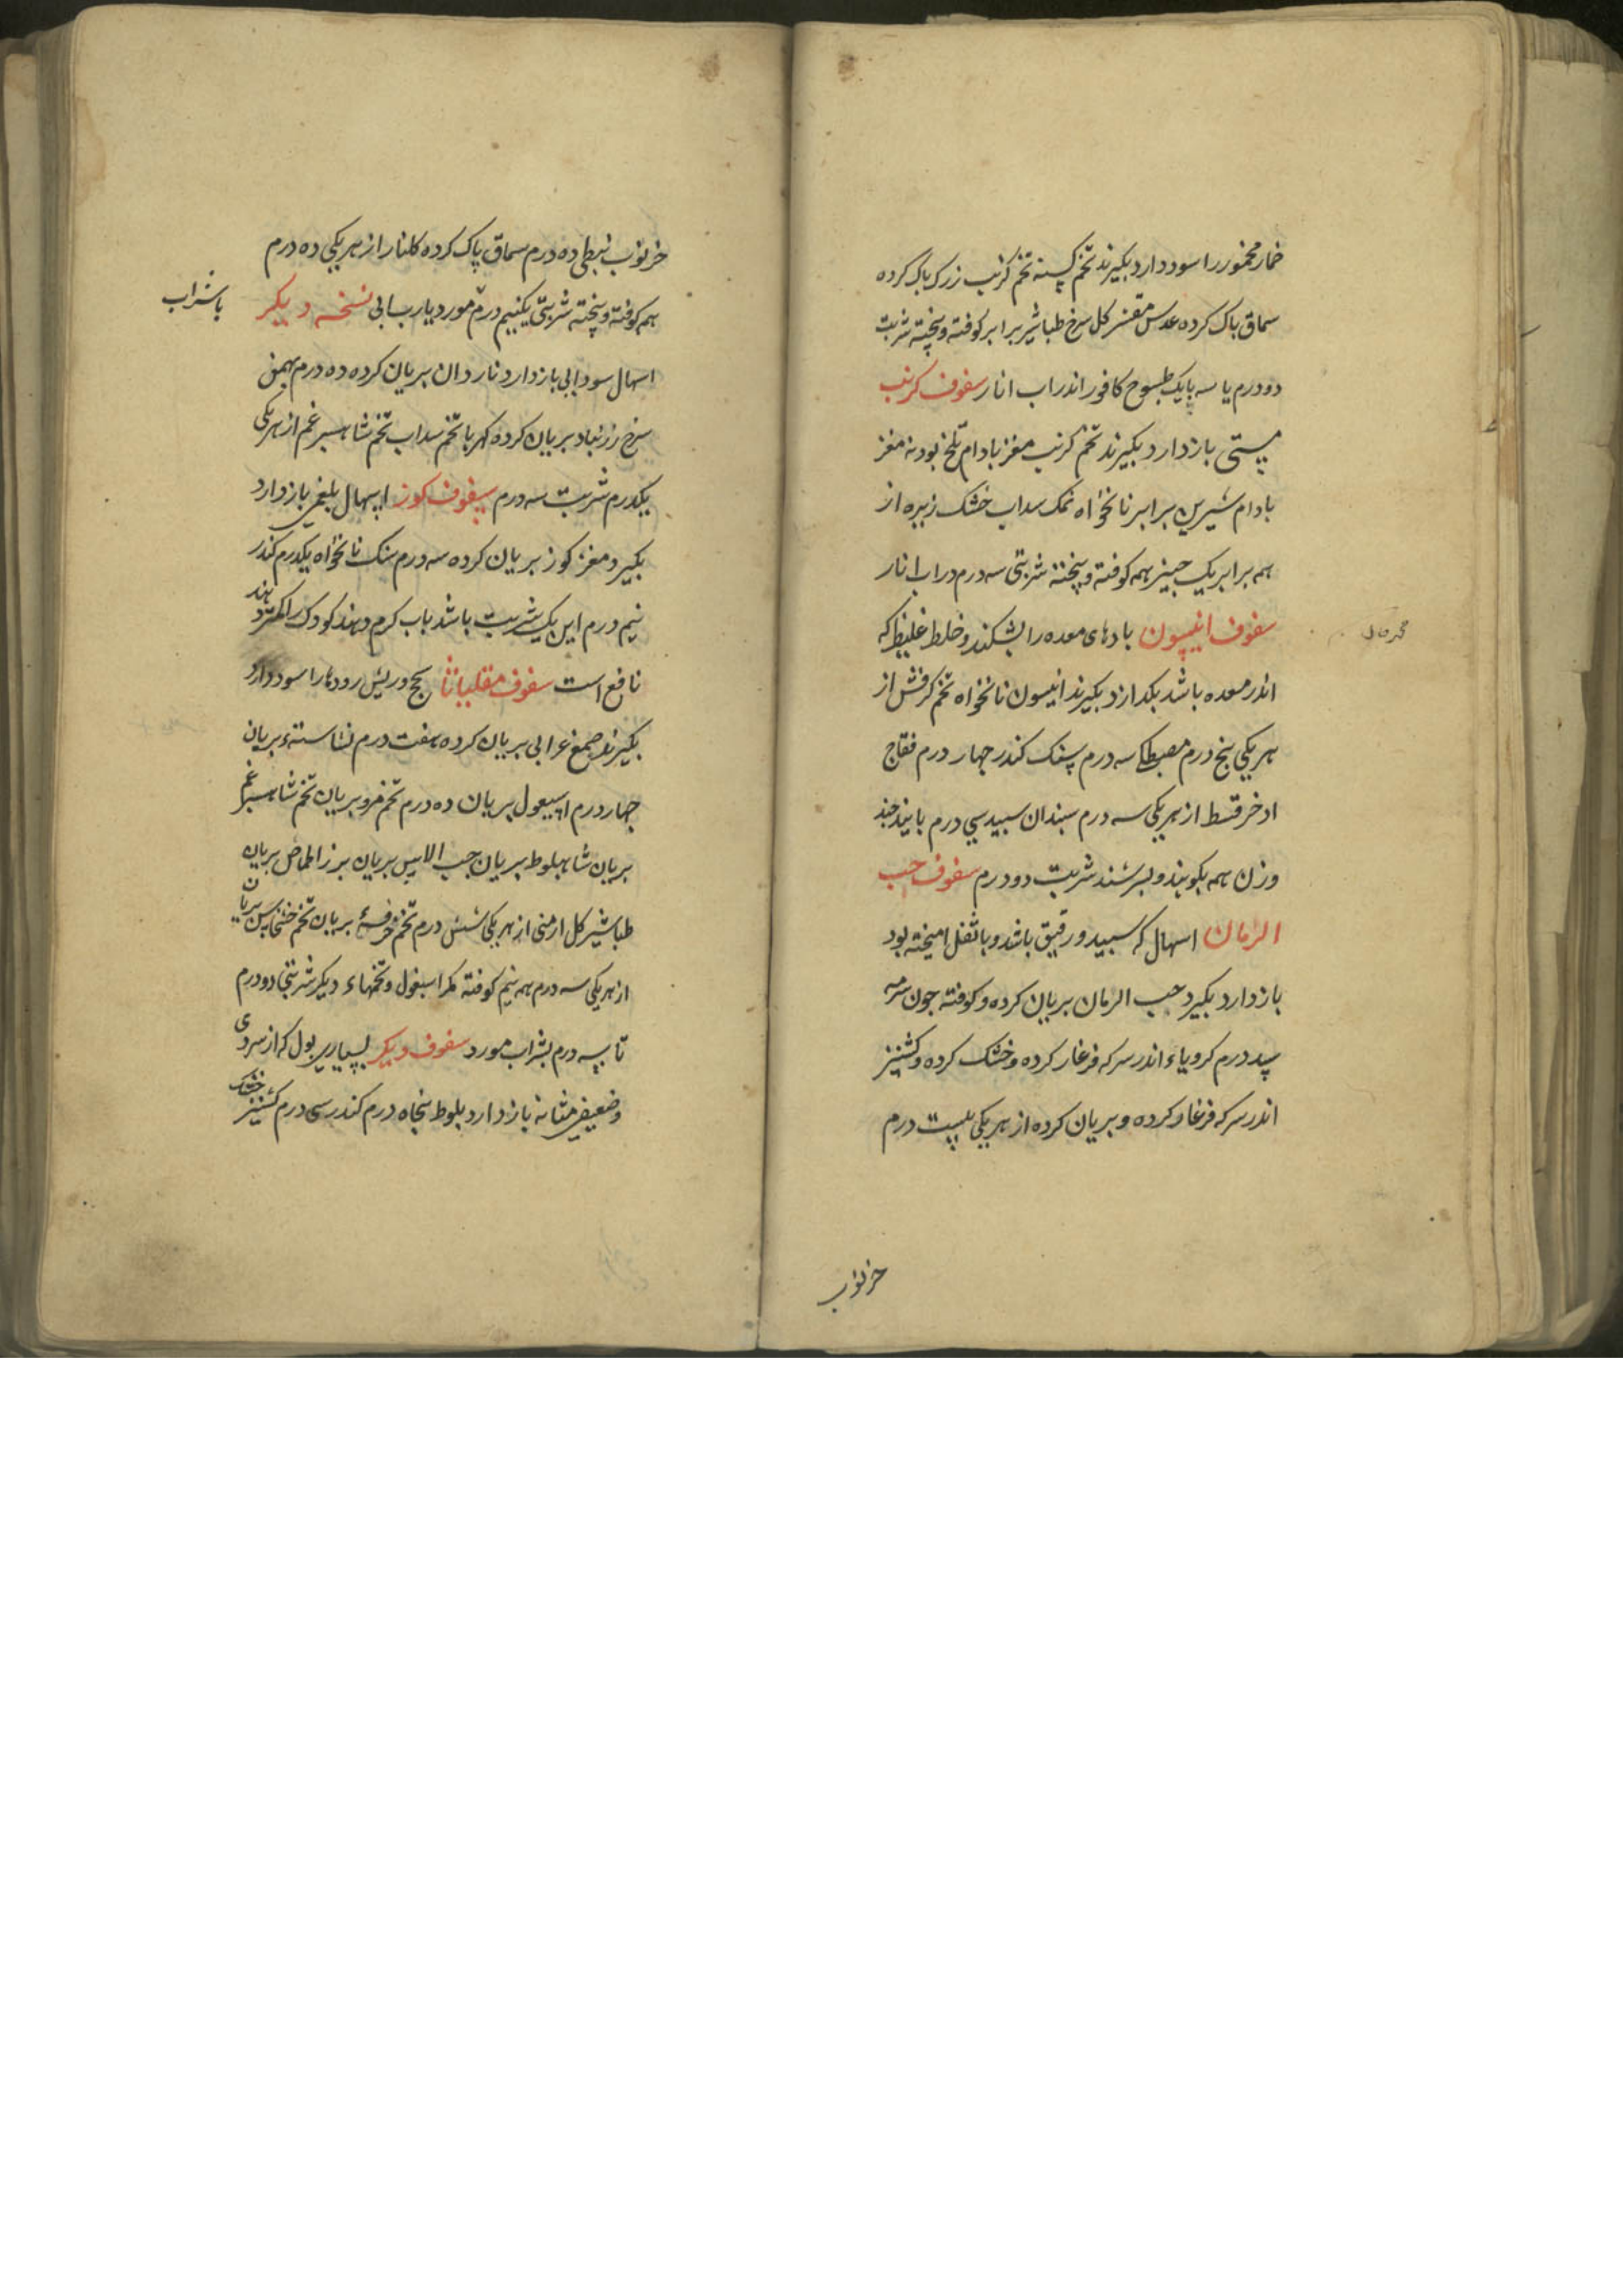 خمار مخمور را سود دارد بکیرند تخم کسنه تخم کرنب زرک باک کرده
سماق باک کرده عدس مقشر کل سرخ طباشیر برابر کوفته و پخته شربت
دو درم یا سه بایک طسوج کافور اندر اب انار سفوف کرنب
مستی باز دارد بکیرند تخم کرنب مغز بادام تلخ بودنه مغز
بادام شیرین برابر نانخواه نمک سداب خشک زیره از
همه برابر یک جیز همه کوفته و پخته شربتی سه درم در اب انار
سفوف انیسون بادهای معده را بشکند و خلط غلیظ که
اندر معده باشد بکدازد بکیرند انیسون نانخواه تخم کرفش از
هر یکی پنج درم مصطکی سه درم پستک کندر جهار درم فقاح
اذخر قسط از هر یکی سه درم سبندان سبید سی درم بانیذ جند
وزن همه بکوبند و بسرشند شربت دو درم سفوف حب
الرمان اسهال که سبید و رقیق باشد و با ثفل امیخته بود
باز دارد بکیرد حب الرمان بریان کرده و کوفته جون سرمه
سیصد درم کرویاء اندر سرکه فرغار کرده و خشک کرده و کشنیز
اندر سرکه فرغار کرده و بریان کرده از هر یکی بیست درم
خرنوب
خرنوب نبطی ده درم سماق پاک کرده کلنار از هر یکی ده درم
همه کوفته و پخته شربتی یکنیم درم مورد یا رب ابی نسخه دیکر
با شراب
اسهال سودایی باز دارد ناردان بریان کرده ده درم بهمن
سرخ زرنباد بریان کرده کهربا تخم سداب تخم شاهسبرغم از هر یکی
یکدرم شربت سه درم سفوف کوز اسهال بلغمی باز دارد
بکیرد مغز کوز بریان کرده سه درم سنک نانخواه یکدرم کندر
نیم درم این یک شربت باشد باب کرم دهند کودک را کمتر دهند
نافع است سفوف مقلیاثا سحج و ریش رودها را سود دارد
بکیرند صمغ عرابی بریان کرده هفت درم نشاسته بریان
جهار درم اسپیغول بریان ده درم تخم مرو بریان تخم شاهسبرغم
بریان شاهبلوط بریان حب الاس بریان بزر الحماض بریان
طباشیر کل ارمنی از هر یکی شش درم تخم خرفه بریان تخم خشخاش بریان
از هر یکی سه درم همه نیم کوفته مکر اسبغول و تخمهاء دیکر شربتی دو درم
تا سه درم بشراب مورد سفوف دیکر بسیاری بول که از سردی
و ضعیفی مثانه باز دارد بلوط پنجاه درم کندر سی درم کشنیز خشک